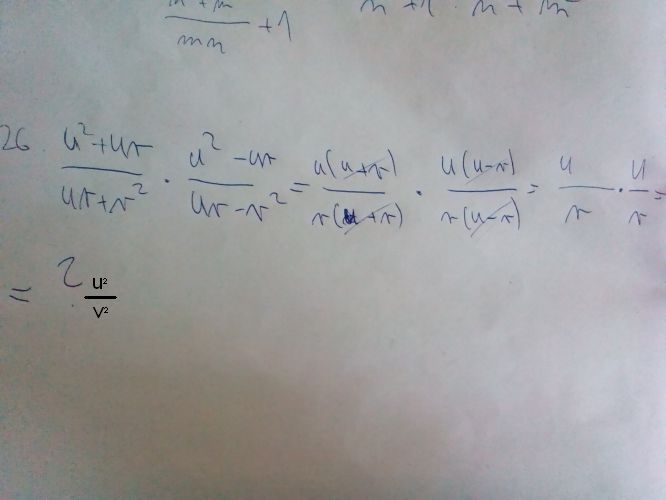 mn + 1
26. u²+uv/uv+v² · u²-uv/uv-v² = u(u+v)/v(u+v) · u(u-v)/v(u-v) = u/v · u/v =
= 2 u²/v²